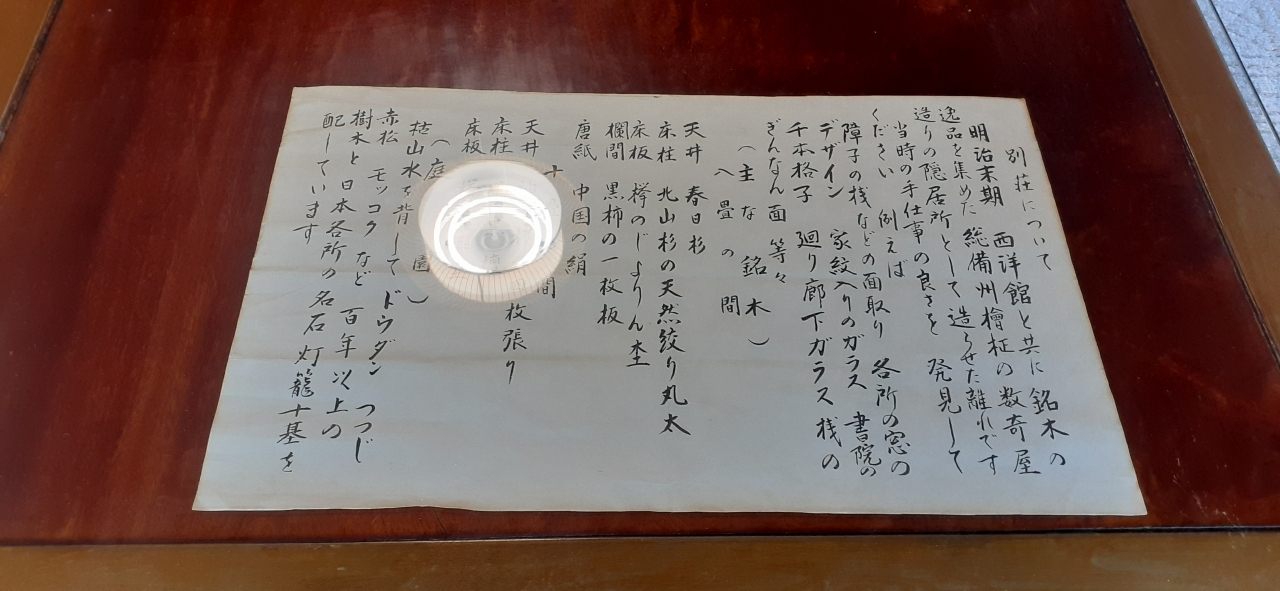 別荘について
明治末期 西洋館と共に銘木の
逸品を集めた 総備州檜柾の数寄屋
造りの隠居所として造らせた離れです
当時の手仕事の良さを 発見して
ください 例えば 各所の窓の
障子の桟などの面取り 書院の
デザイン 家紋入りのガラス
千本格子 廻り廊下ガラス桟の
ぎんなん面 等々
(主な銘木)
八畳の間
天井 春日杉
床柱 北山杉の天然絞り丸太
床板 欅のじょりん杢
欄間 黒柿の一枚板
唐紙 中国の絹
十 間
天井 枚張り
床柱
床板
(庭園)
枯山水を背して ドウダン つつじ
赤松 モッコクなど 百年以上の
樹木と日本各所の名石灯籠十基を
配しています